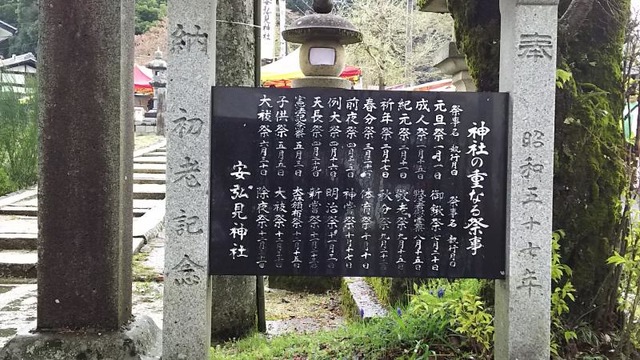 奉
昭和三十七年
神社の重なる祭事
祭事名 執行月日 祭事名 執行月日
元旦祭 一月一日
成人祭 一月十五日
紀元祭 二月十一日 敬老祭 九月十五日
祈年祭 二月十七日 秋分祭
春分祭 三月二十一日 体育祭 十月十日
前夜祭 四月十五日 神嘗祭 十月十七日
例大祭 四月十六日 明治祭 十一月三日
天長祭 四月二十九日 新嘗祭
憲法発布祭 五月三日
子供祭 五月五日 大祓祭
大祓祭 六月三十日 除夜祭 十二月三十一日
安弘見神社
納
初老記念